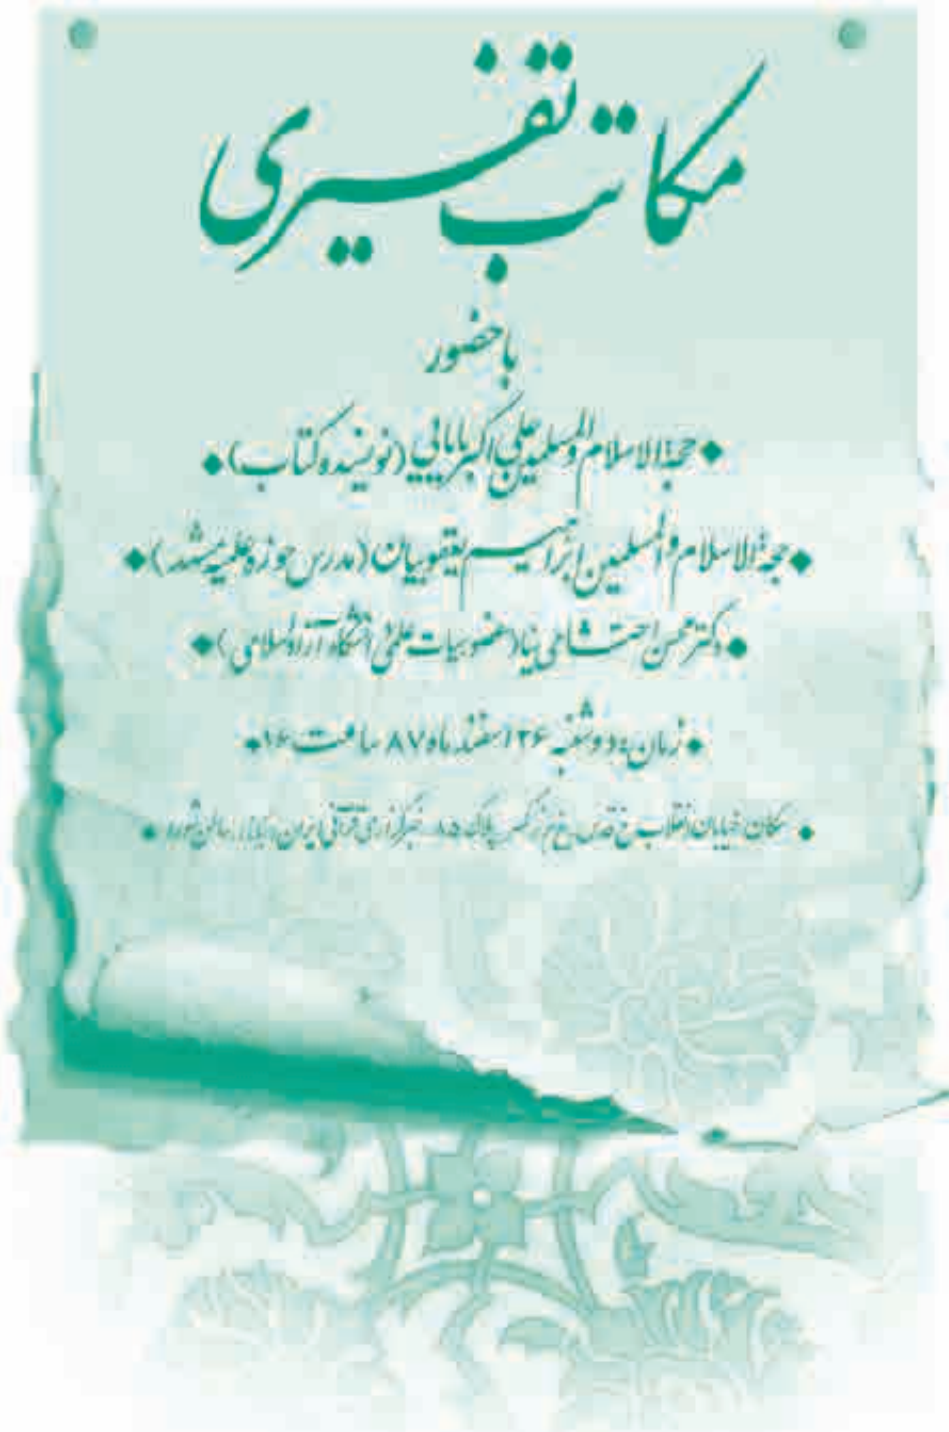 مکاتب تفسیری
با حضور
◆حجةالاسلام والمسلمین علی اکبر بابایی (نویسنده کتاب)◆
◆حجةالاسلام والمسلمین ابراهیم یعقوبیان (مدرس حوزه علمیه مشهد)◆
◆دکتر محسن احتشامی نیا (عضو هیات علمی دانشگاه آزاد اسلامی)◆
◆زمان: دوشنبه ۲۶ اسفند ماه ۸۷ ساعت ۱۶◆
◆مکان: خیابان انقلاب خ قدس خ بزرگمهر پلاک ۸۵ خبرگزاری قرآنی ایران (ایکنا) سالن شورا◆